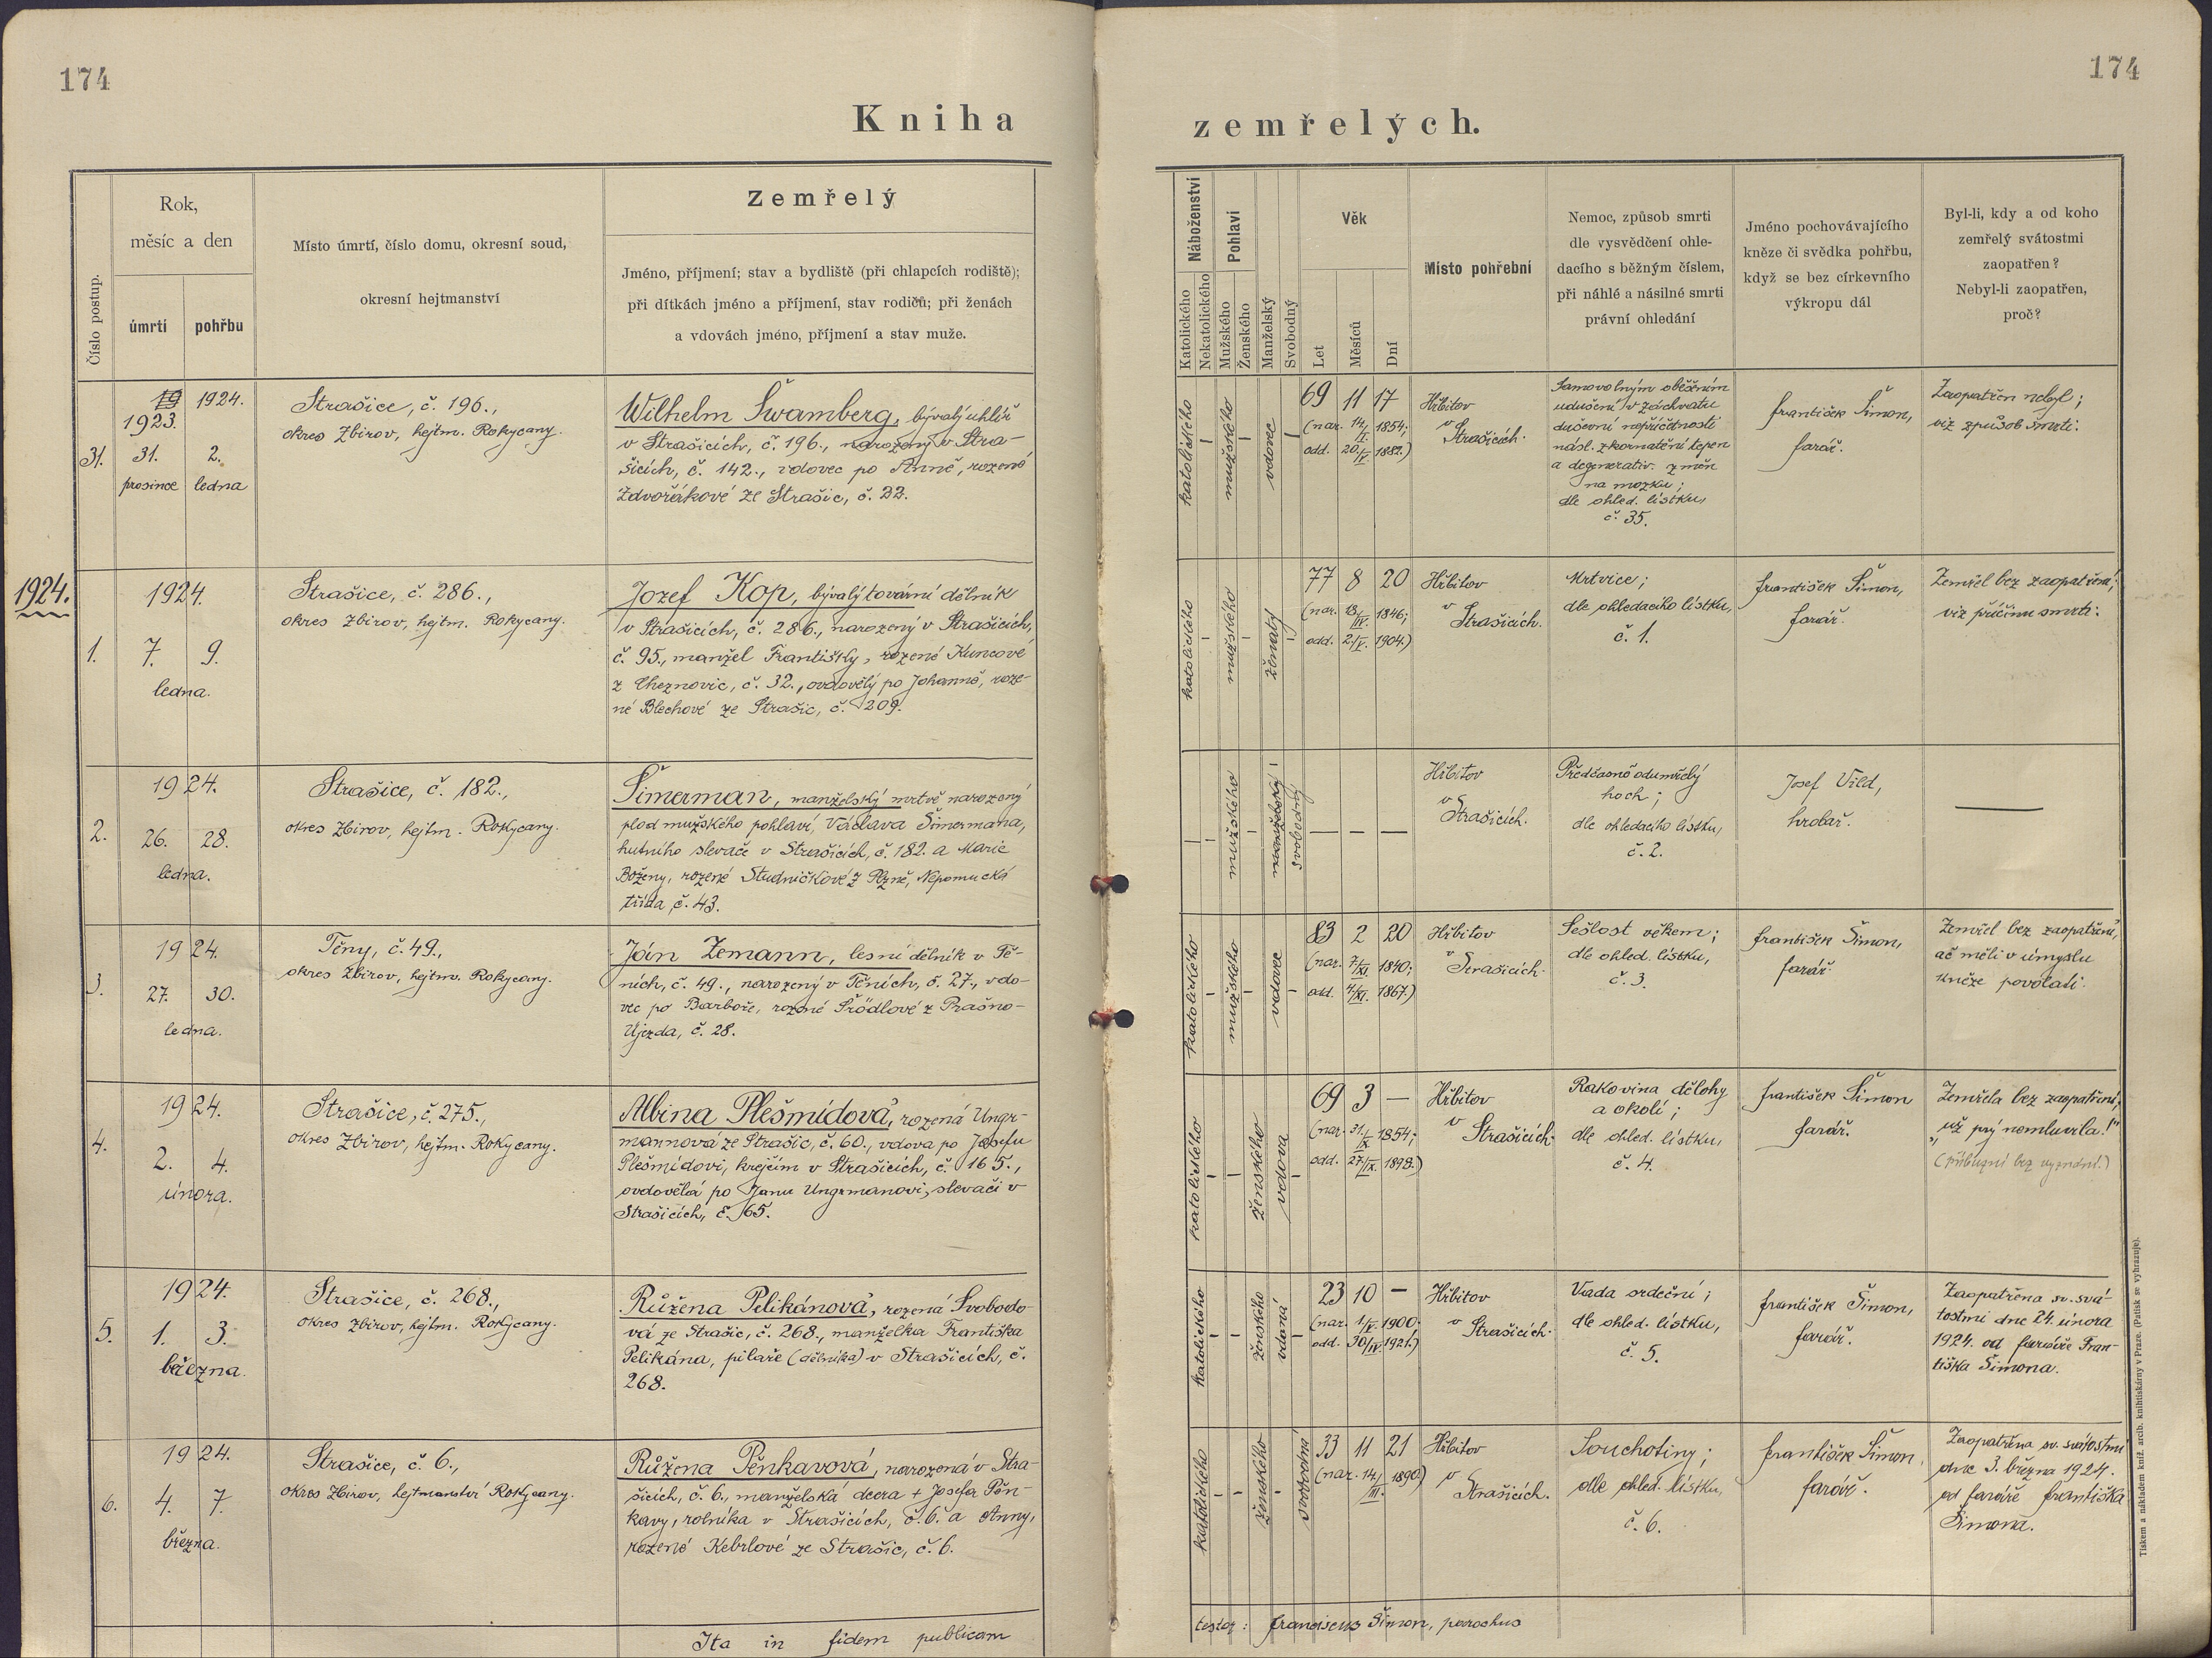 174
174
Kniha zemřelých.
Číslo postup.
Rok,
měsíc a den
úmrtí
pohřbu
Místo úmrtí, číslo domu, okresní soud,
okresní hejtmanství
Zemřelý
Jméno, příjmení; stav a bydliště (při chlapcích rodiště);
při dítkách jméno a příjmení, stav rodičů; při ženách
a vdovách jméno, příjmení a stav muže.
Náboženství
Katolického
Nekatolického
Pohlaví
Mužského
Ženského
Manželský
Svobodný
Věk
Let
Měsíců
Dní
Místo pohřební
Nemoc, způsob smrti
dle vysvědčení ohle-
dacího s běžným číslem,
při náhlé a násilné smrti
právní ohledání
Jméno pochovávajícího
kněze či svědka pohřbu,
když se bez církevního
výkropu dál
Byl-li, kdy a od koho
zemřelý svátostmi
zaopatřen?
Nebyl-li zaopatřen,
proč?
31.
19 1924.
1923.
31. 2.
prosince ledna
Strašice, č. 196.,
okres Zbirov, hejtm. Rokycany.
Wilhelm Švamberg, bývalý uhlíř
v Strašicích, č. 196., narozený v Stra-
šicích, č. 142., vdovec po Anně, rozené
Zdvořákové ze Strašic, č. 22.
katolického
mužského
vdovec
69 11 17
(nar. 14/I. 1854;
odd. 20/V. 1882.)
Hřbitov
v
Strašicích.
Samovolným oběšením
udušení v záchvatu
duševní nepříčetnosti
násl. zkornatění tepen
a degenerativ. změn
na mozku;
dle ohled. lístku,
č. 35.
František Šimon,
farář.
Zaopatřen nebyl;
viz způsob smrti.
1924.
1.
1924.
7. 9.
ledna.
Strašice, č. 286.,
okres Zbirov, hejtm. Rokycany.
Jozef Kop, bývalý tovární dělník
v Strašicích, č. 286., narozený v Strašicích,
č. 95., manžel Františky, rozené Kuncové
z Cheznovic, č. 32., ovdovělý po Johanně, roze-
né Blechové ze Strašic, č. 209.
katolického
mužského
ženatý
77 8 20
(nar. 18/IV. 1846;
odd. 2/V. 1904.)
Hřbitov
v
Strašicích.
Mrtvice;
dle ohledacího lístku,
č. 1.
František Šimon,
farář.
Zemřel bez zaopatření;
viz příčinu smrti.
2.
1924.
26. 28.
ledna.
Strašice, č. 182.,
okres Zbirov, hejtm. Rokycany.
Šimerman, manželský mrtvě narozený
plod mužského pohlaví, Václava Šimermana,
hutního slevače v Strašicích, č. 182. a Marie
Boženy, rozené Studničkové z Plzně, Nepomucká
třída, č. 43.
mužského
manželský
svobodný
Hřbitov
v
Strašicích.
Předčasně odumřelý
hoch;
dle ohledacího lístku,
č. 2.
Josef Vild,
hrobař.
3.
1924.
27. 30.
ledna.
Těny, č. 49.,
okres Zbirov, hejtm. Rokycany.
Ján Zemann, lesní dělník v Tě-
ních, č. 49., narozený v Těních, č. 27., vdo-
vec po Barboře, rozené Šrödlové z Prašno-
Újezda, č. 28.
katolického
mužského
vdovec
83 2 20
(nar. 7/XI. 1840;
odd. 4/XI. 1867.)
Hřbitov
v
Strašicích.
Sešlost věkem;
dle ohled. lístku,
č. 3.
František Šimon,
farář.
Zemřel bez zaopatření,
ač měli v úmyslu
kněze povolati.
4.
1924.
2. 4.
února.
Strašice, č. 275.,
okres Zbirov, hejtm. Rokycany.
Albina Plešmídová, rozená Ungr-
mannová ze Strašic, č. 60., vdova po Josefu
Plešmídovi, krejčím v Strašicích, č. 165.,
ovdovělá po Janu Ungrmanovi, slevači v
Strašicích, č. 65.
katolického
ženského
vdova
69 3 —
(nar. 31/X. 1854;
odd. 27/IX. 1898.)
Hřbitov
v
Strašicích.
Rakovina dělohy
a okolí;
dle ohled. lístku,
č. 4.
František Šimon
farář.
Zemřela bez zaopatření;
„už prý nemluvila!"
(příbuzní bez vyznání.)
5.
1924.
1. 3.
března.
Strašice, č. 268.,
okres Zbirov, hejtm. Rokycany.
Růžena Pelikánová, rozená Svobodo-
vá ze Strašic, č. 268., manželka Františka
Pelikána, pilaře (dělníka) v Strašicích, č.
268.
katolického
ženského
vdaná
23 10 —
(nar. 1/V. 1900.
odd. 30/IV. 1921.)
Hřbitov
v
Strašicích.
Vada srdeční;
dle ohled. lístku,
č. 5.
František Šimon,
farář.
Zaopatřena sv. svá-
tostmi dne 24. února
1924. od faráře Fran-
tiška Šimona.
6.
1924.
4. 7.
března.
Strašice, č. 6.,
okres Zbirov, hejtmanství Rokycany.
Růžena Pěnkavová, narozená v Stra-
šicích, č. 6., manželská dcera + Josefa Pěn-
kavy, rolníka v Strašicích, č. 6. a Anny,
rozené Kebrlové ze Strašic, č. 6.
katolického
ženského
svobodná
33 11 21
(nar. 14/III. 1890.)
Hřbitov
v
Strašicích.
Souchotiny;
dle ohled. lístku,
č. 6.
František Šimon,
farář.
Zaopatřena sv. svátostmi
dne 3. března 1924.
od faráře Františka
Šimona.
Ita in fidem publicam
testor: Franciscus Šimon, parochus
Tiskem a nákladem kníž. arcib. knihtiskárny v Praze. (Patisk se vyhrazuje).